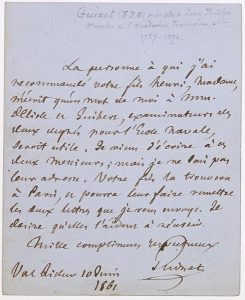 La personne à qui j'ai
recommandé votre fils Henri, Madame,
m'écrit qu'un mot de moi à MM.
Delisle et Guibert, examinateurs des
deux degrés pour l'École navale,
serait utile. Je viens d'écrire à ces
deux Messieurs; mais je ne sais pas
leur adresse. Votre fils la trouvera
à Paris, et pourra leur faire remettre
les deux lettres que je vous envoye. Je
désire qu'elles l'aident à réussir.
Mille compliments respectueux
Guizot
Val Richer 10 Juin
1861